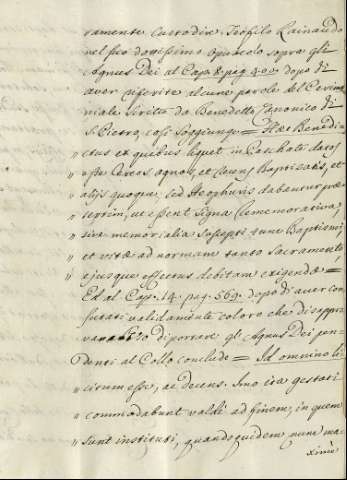 ramente custodire. Teofilo Rainaudo
nel suo dottissimo opuscolo sopra gli
Agnus Dei al Cap. 8. pag. 40. dopo di
aver riferite alcune parole del Cerimo
niale scritto da Benedetto Canonico di
S. Pietro, così soggiunge = Haec Benedi-
„ ctus ex quibus liquet in Paschate datos
„ esse Cereos agnos, et recens Baptizatis, et
„ alijs quoque, sed Neophytis dabantur prae
„ sertim, ut essent signa rememorativa,
„ sive memorialia suscepti tunc Baptismi,
„ et vitae ad normam tanto Sacramento
„ ejusque effectus debitam exigendae =
Ed al Cap. 14. pag. 569. dopo di aver con
futati validamente coloro che disappro
vavano di portare gli Agnus Dei pen-
denti al Collo conclude = Id omnino li
„ citum esse, ac decens. Imo ita gestati
„ commodabunt valdè ad finem, in quem
„ sunt instituti, quandoquidem tunc ma
ximè